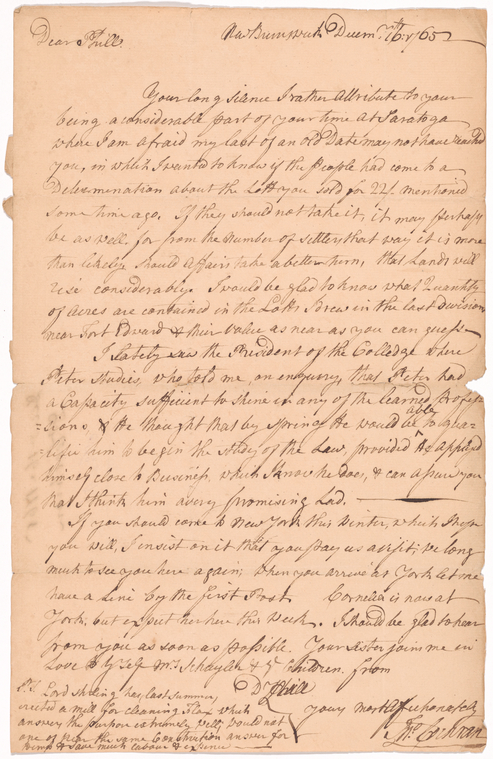 Dear Phill. New Brunswick Decemr. 16th. 1765
Your long silence I rather Attribute to your
being a considerable part of your time at Saratoga
where I am afraid my last of an old Date may not have reached
you, in which I wanted to know if the People had come to a
Determination about the Lott you sold for 22/. mentioned
some time ago, If they should not take it, it may perhaps
be as well. for from the Number of settlers that way it is more
than likely should Affairs take a better turn, that Lands will
rise considerably. I would be glad to know what Quantity
of Acres are contained in the Lotts I drew in the last Division
near Fort Edward & their Value as near as you can guess
I Lately saw the President of the Colledge where
Peter Studies, who told me, on enquiry, that Peter had
a Capacity sufficient to shine in any of the learned Profes-
=sions, & He thought that by spring He would be able to qua-
=lifie him to begin the study of the Law, provided He applyed
himself close to Business, which I know he does, & can assure you
that I think him a very promising Lad.
If you should come to New York this Winter, which I hope
you will, I insist on it that you pay us a visit; we long
much to see you here again; when you arrive at York let me
have a Line by the first Post. Cornelia is now at
York, but expect her here this Week. I should be glad to hear
from you as soon as possible. Your sister joins me in
Love to Mrs. Schuyler & ye. Children. from
Dr. Phill
your most Affectionately
Jno. Cochran
P.S. Lord Sterling has last summer
erected a mill for cleaning Flax which
answers the purpose extremely well, would not
one of near the same Construction answer for
Hemp & save much labour & expence